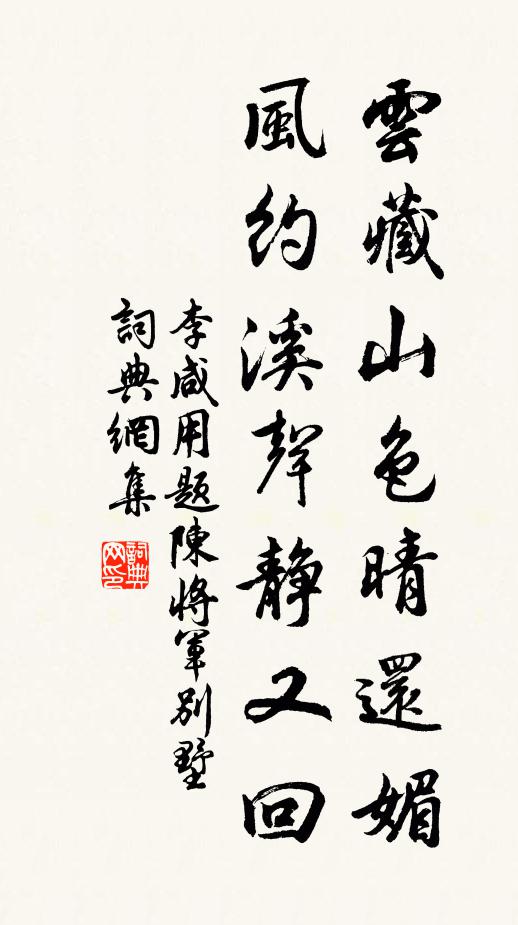 雲藏山色晴還媚
風約溪聲静又回
李咸用題陳將軍別墅
詞典網集
詞典
网印